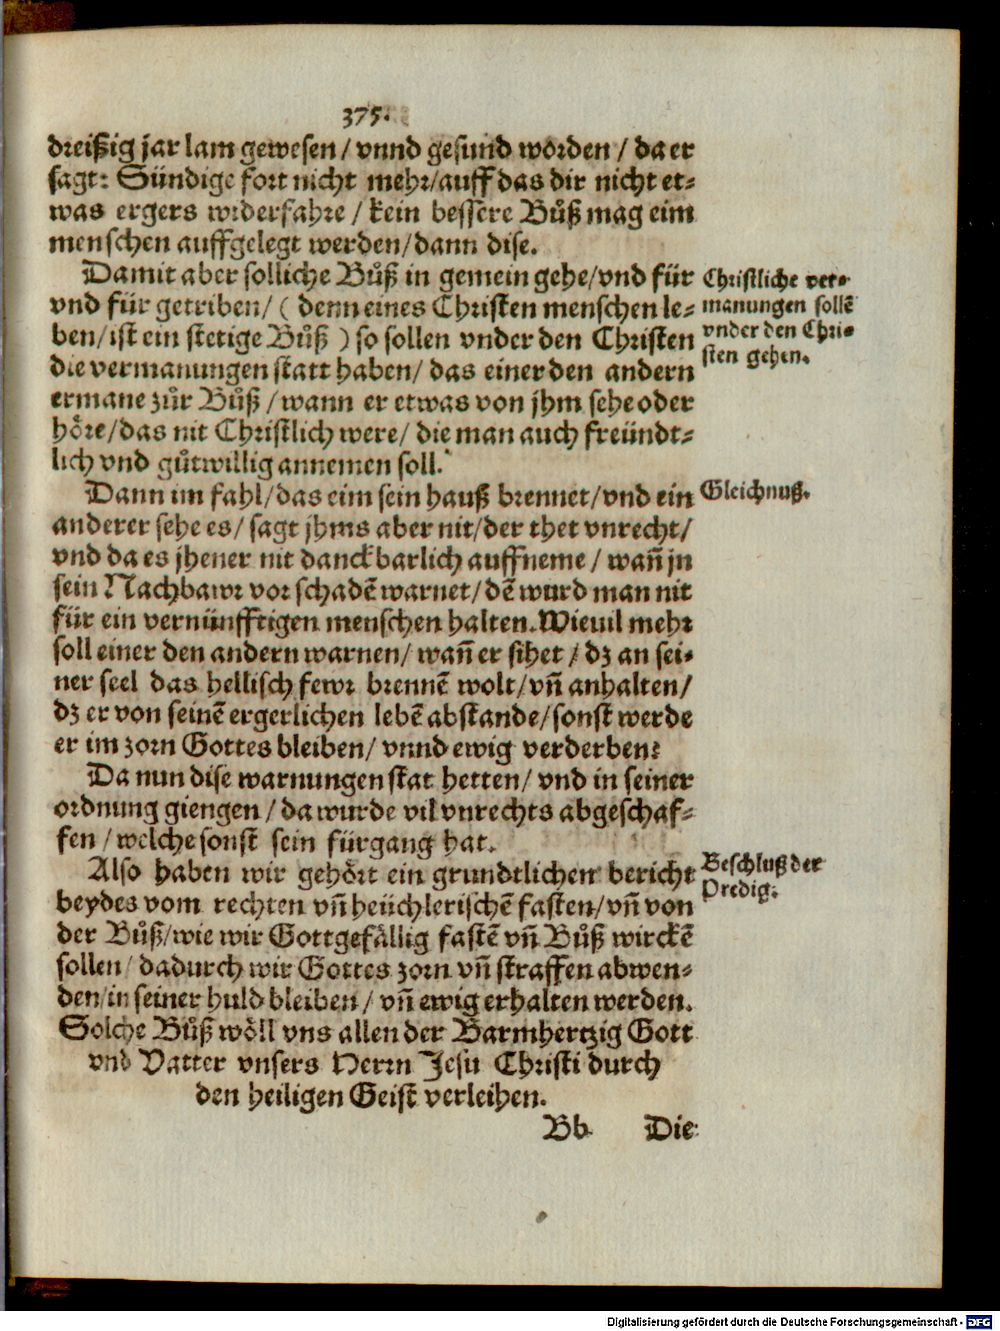 375.
dreißig jar lam gewesen / vnnd gesund worden / da er
sagt: Sündige fort nicht mehr/auff das dir nicht et⸗
was ergers widerfahre / kein bessere Bůß mag eim
menschen auffgelegt werden/dann dise.
Damit aber solliche Bůß in gemein gehe/vnd für
vnd für getriben/ ( denn eines Christen menschen le⸗
ben/ist ein stetige Bůß ) so sollen vnder den Christen
die vermanungen statt haben/ das einer den andern
ermane zůr Bůß / wann er etwas von jhm sehe oder
hoͤre/das nit Christlich were/ die man auch freündt⸗
lich vnd gůtwillig annemen soll.
Christliche ver⸗
manungen sollē
vnder den Chri⸗
sten gehen.
Dann im fahl/das eim sein hauß brennet/vnd ein
anderer sehe es/ sagt jhms aber nit/der thet vnrecht/
vnd da es jhener nit danckbarlich auffneme / wañ jn
sein Nachbawr vor schadē warnet/dē wurd man nit
für ein vernünfftigen menschen halten. Wieuil mehr
soll einer den andern warnen/ wañ er sihet / dz an sei⸗
ner seel das hellisch fewr brennē wolt/vñ anhalten/
dz er von seinē ergerlichen lebē abstande/sonst werde
er im zorn Gottes bleiben/ vnnd ewig verderben?
Gleichnuß.
Da nun dise warnungen stat hetten/ vnd in seiner
ordnung giengen / da wurde vil vnrechts abgeschaf⸗
fen / welche sonst sein fürgang hat.
Also haben wir gehoͤrt ein grundtlichen bericht
beydes vom rechten vñ heüchlerischē fasten/vñ von
der Bůß/wie wir Gottgefaͤllig fastē vñ Bůß wirckē
sollen/ dadurch wir Gottes zorn vñ straffen abwen⸗
den/in seiner huld bleiben / vñ ewig erhalten werden.
Solche Bůß woͤll vns allen der Barmhertzig Gott
vnd Vatter vnsers Herrn Jesu Christi durch
den heiligen Geist verleihen.
Beschluß der
Predig.
Bb Die
Digitalisierung gefördert durch die Deutsche Forschungsgemeinschaft - DFG